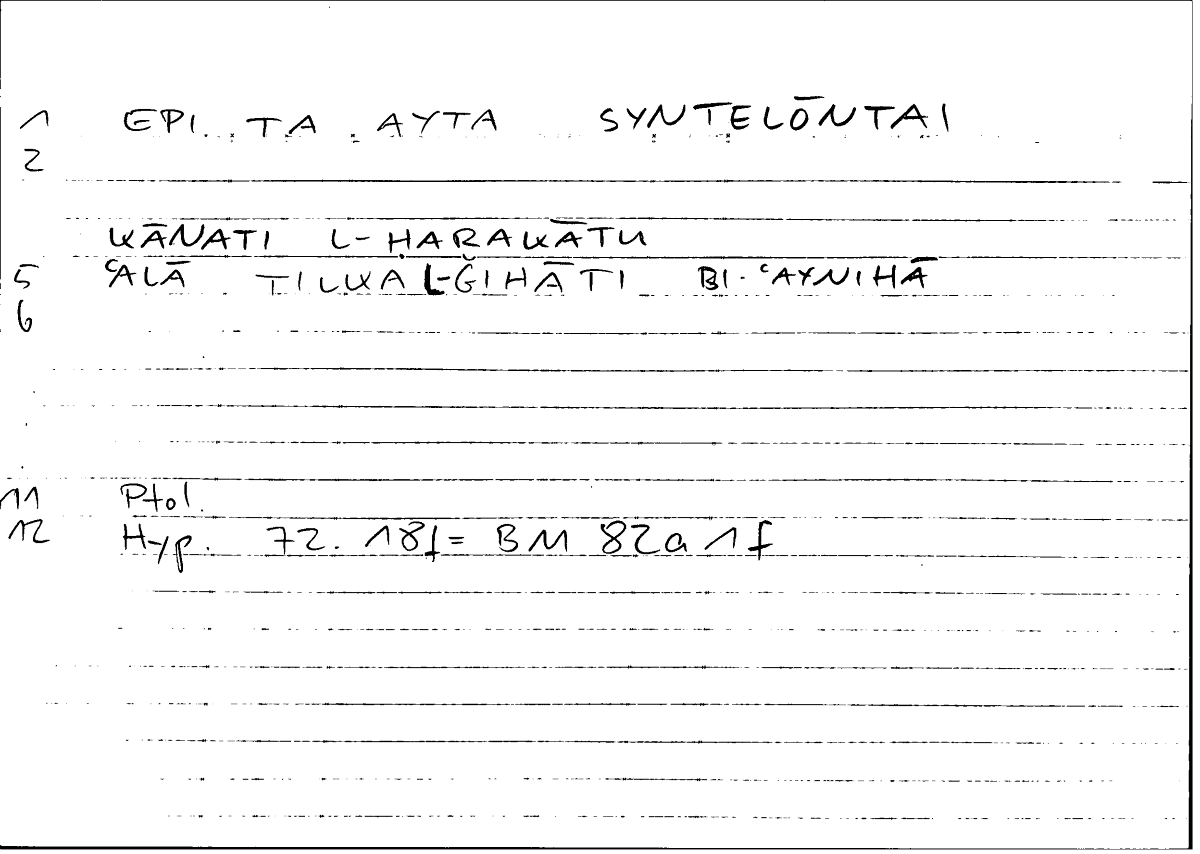 1 EPI TA AYTA SYNTELŌNTAI
2
KĀNATI L-ḤARAKĀTU
5 ʿALĀ TILKA L-ǦIHĀTI BI-ʿAYNIHĀ
6
11 Ptol.
12 Hyp. 72. 18f = BM 82a 1f